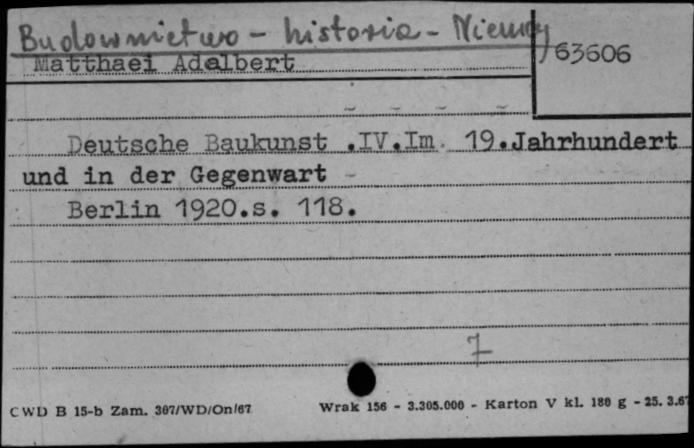 Budownictwo - historia - Niemcy
63606
Matthaei Adalbert
Deutsche Baukunst .IV.Im 19.Jahrhundert
und in der Gegenwart -
Berlin 1920.s. 118.
7
CWD B 15-b Zam. 307/WD/On/67 Wrak 156 - 3.305.000 - Karton V kl. 180 g - 25. 3.67